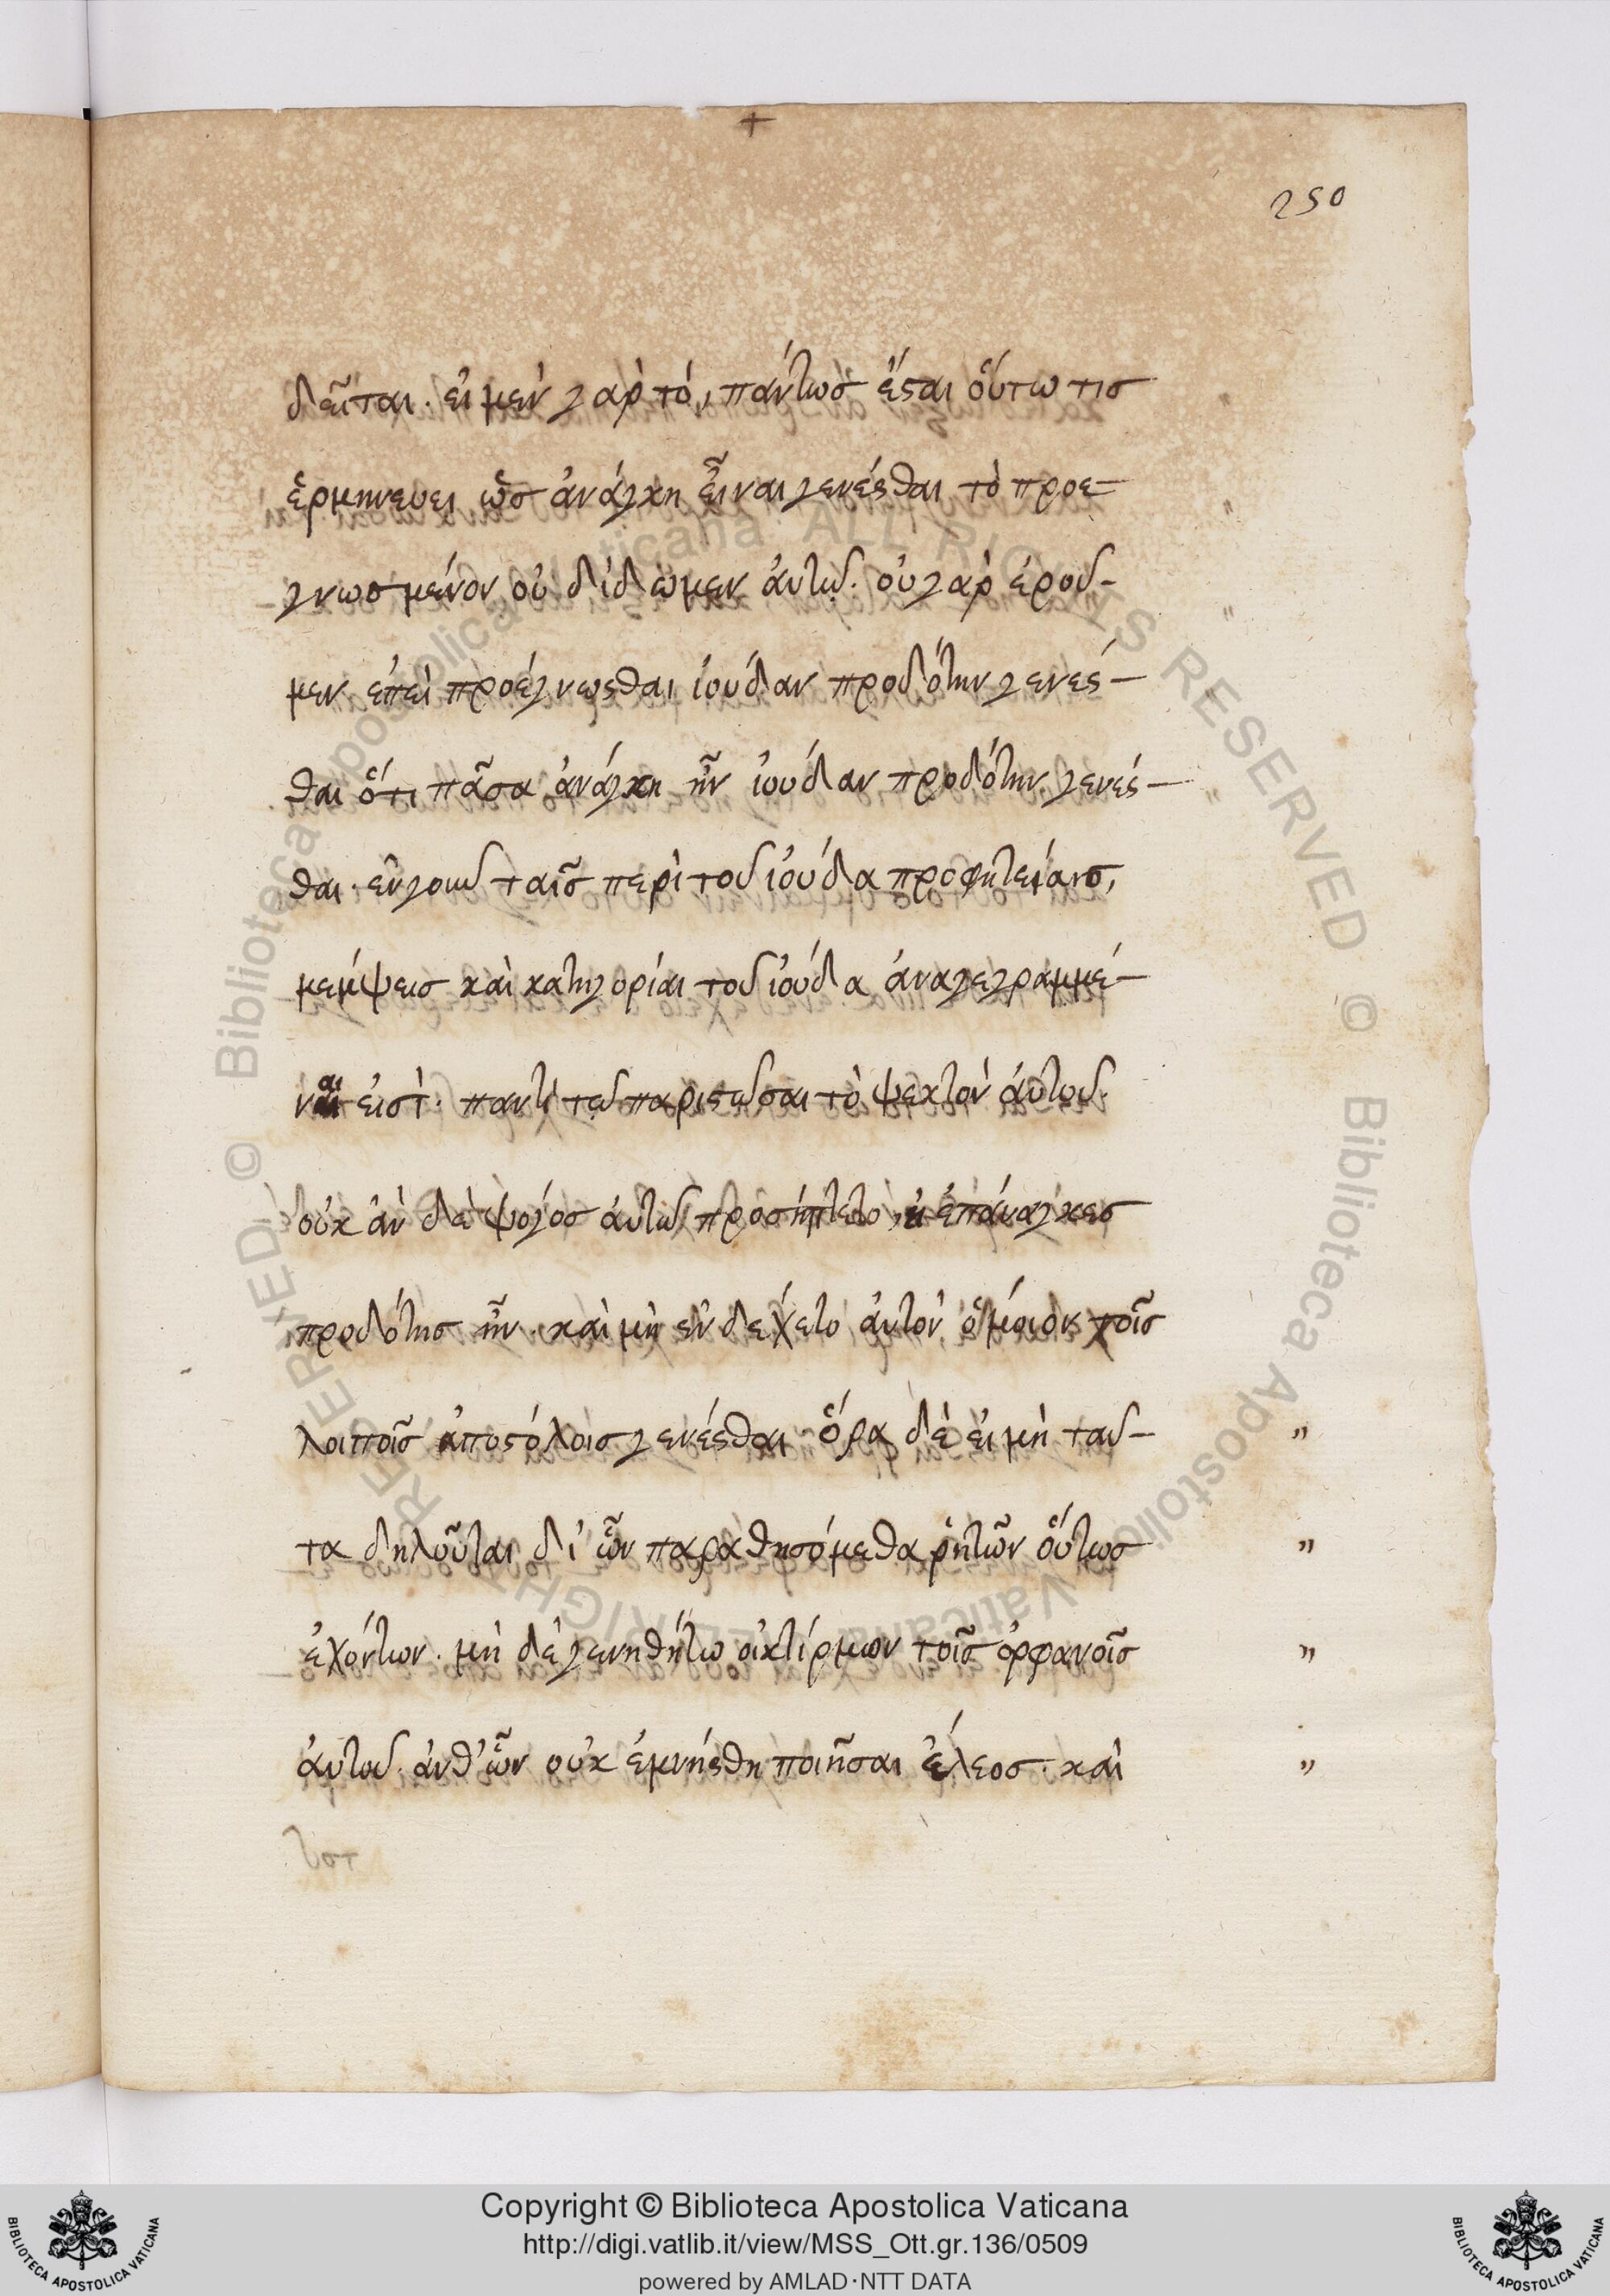 +
250
δεῖται· εἰ μὲν γὰρ τό, πάντως ἔσται οὕτω τις
ἑρμηνευει ὡς ἀνάγκη εἶναι γενέσθαι τὸ προε-
γνωσμένον οὐ διδώμεν ἀυτῷ· οὐ γὰρ ἐροῦ-
μεν ἐπεὶ προέγνωσθαι ἰούδαν προδότην γενέσ-
θαι ὅτι πᾶσα ἀνάγκη ἦν ἰούδαν προδότην γενέσ-
θαι· ἐν γοῦν ταῖς περὶ τοῦ ἰούδα προφητείαις,
μέμψεις καὶ κατηγορίαι τοῦ ἰούδα ἀναγεγραμμέ-
ναι εἰσὶ· παντί τῳ παριστῶσαι τὸ ψεκτὸν ἀυτοῦ·
οὐκ ἂν δὲ ψόγος ἀυτῷ προσήπτετο, εἰ ἐπάναγκες
προδότης ἦν· καὶ μὴ ἐνδεχετο ἀυτὸν ὅμοιον τοῖς
λοιποῖς ἀποστόλοις γενέσθαι ὅρα δὲ εἰ μὴ ταῦ- "
τα δηλοῦται δι' ὧν παραθησόμεθα ῥητῶν οὕτως "
ἐχόντων· μὴ δὲ γενηθήτω οἰκτίρμων τοῖς ὀρφανοῖς "
ἀυτοῦ· ἀνθ' ὧν οὐκ ἐμνήσθη ποιῆσαι ἔλεος· καὶ "
Copyright © Biblioteca Apostolica Vaticana
http://digi.vatlib.it/view/MSS_Ott.gr.136/0509
powered by AMLAD·NTT DATA
BIBLIOTECA APOSTOLICA VATICANA
BIBLIOTECA APOSTOLICA VATICANA